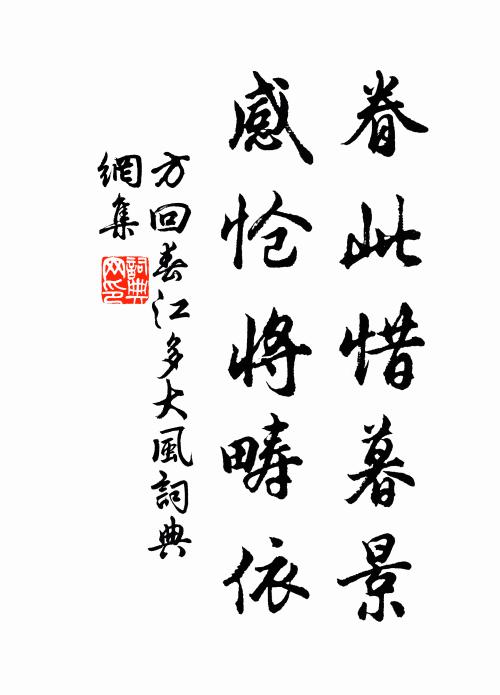 眷此惜暮景
感怆將疇依
方回春江多大風詞典
網集
詞典
网印